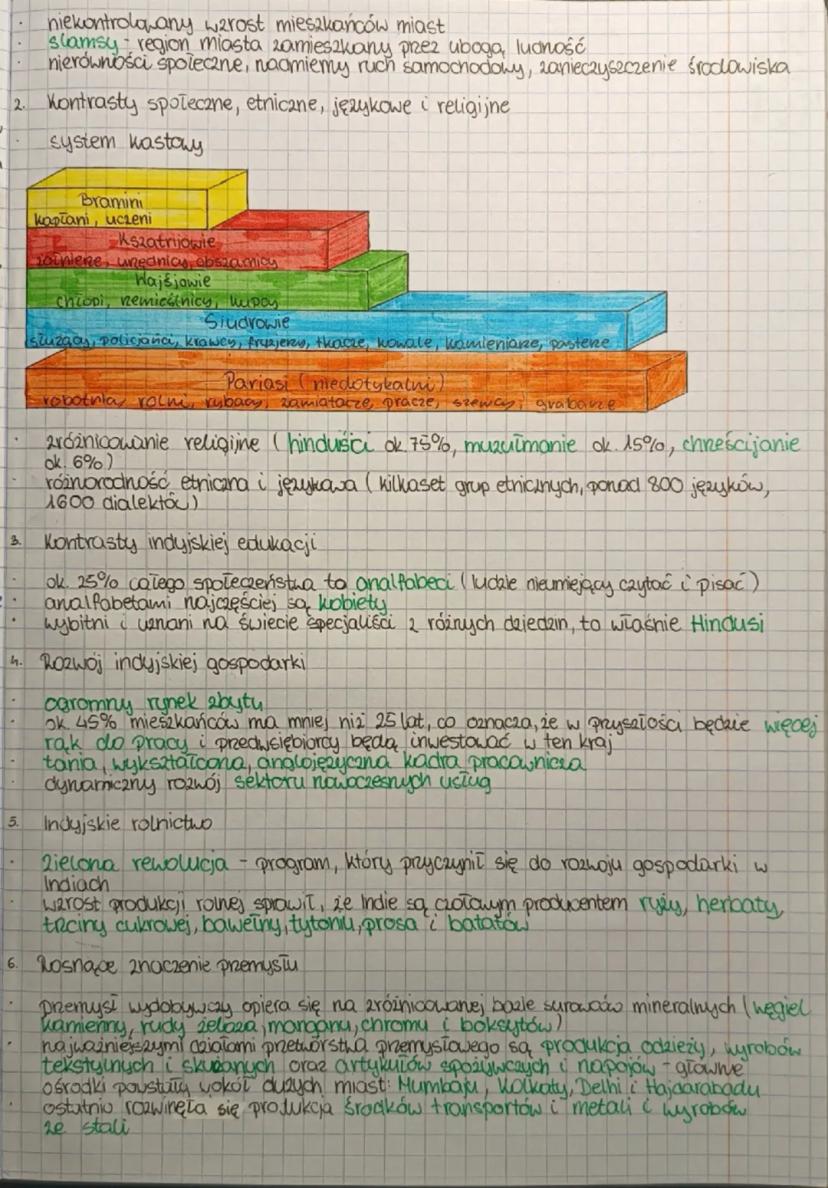 · niekontrolowany wzrost mieszkańców miast
· slamsy - region miasta zamieszkany przez ubogą ludność
· nierówności społeczne, nadmierny ruch samochodowy, zanieczyszczenie środowiska
2. Kontrasty społeczne, etniczne, językowe i religijne
· system kastowy
Bramini
kapłani, uczeni
Kszatrijowie
żołnierze, urzędnicy, obszarnicy
Wajśjowie
chłopi, rzemieślnicy, kupcy
Siudrowie
służący, policjanci, krawcy, fryzjerzy, tkacze, kowale, kamieniarze, pasterze
Pariasi (niedotykalni)
robotnicy rolni, rybacy, zamiatacze, pracze, szewcy, grabarze
· zróżnicowanie religijne (hinduści ok. 75%, muzułmanie ok. 15%, chrześcijanie
ok. 6%)
· różnorodność etniczna i językowa (kilkaset grup etnicznych, ponad 800 języków,
1600 dialektów)
3. Kontrasty indyjskiej edukacji
· ok. 25% całego społeczeństwa to analfabeci (ludzie nieumiejący czytać i pisać)
· analfabetami najczęściej są kobiety
· wybitni i uznani na świecie specjaliści z różnych dziedzin, to właśnie Hindusi
4. Rozwój indyjskiej gospodarki
· ogromny rynek zbytu
· ok. 45% mieszkańców ma mniej niż 25 lat, co oznacza, że w przyszłości będzie więcej
rąk do pracy i przedwsiębiorcy będą inwestować w ten kraj
· tania, wykształcona, anglojęzyczna kadra pracownicza
· dynamiczny rozwój sektoru nowoczesnych usług
5. Indyjskie rolnictwo
· Zielona rewolucja - program, który przyczynił się do rozwoju gospodarki w
Indiach
· wzrost produkcji rolnej sprawił, że Indie są czołowym producentem ryżu, herbaty,
trzciny cukrowej, bawełny, tytoniu, prosa i batatów
6. Rosnące znaczenie przemysłu
· przemysł wydobywczy opiera się na zróżnicowanej bazie surowców mineralnych (węgiel
kamienny, rudy żelaza, manganu, chromu i boksytów)
· najważniejszymi działami przetwórstwa przemysłowego są produkcja odzieży, wyrobów
tekstylnych i skórzanych oraz artykułów spożywczych i napojów - główne
ośrodki powstały wokół dużych miast: Mumbaju, Kolkaty, Delhi i Hajdarabadu
· ostatnio rozwinęła się produkcja środków transportów i metali i wyrobów
ze stali